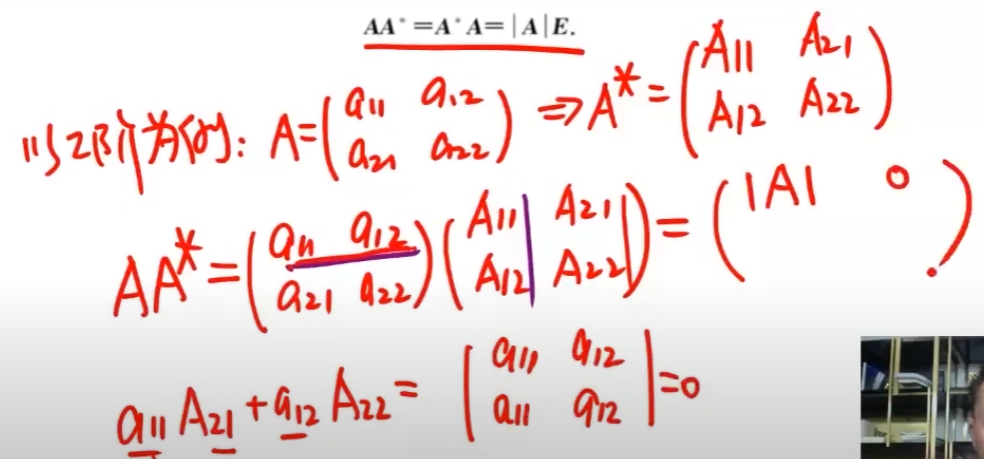 AA* = A*A = |A|E.
以2阶为例: A = ( a11 a12 ; a21 a22 ) ⇒ A* = ( A11 A21 ; A12 A22 )
AA* = ( a11 a12 ; a21 a22 ) ( A11 A21 ; A12 A22 ) = ( |A| 0 )
a11 A21 + a12 A22 = | a11 a12 ; a11 a12 | = 0